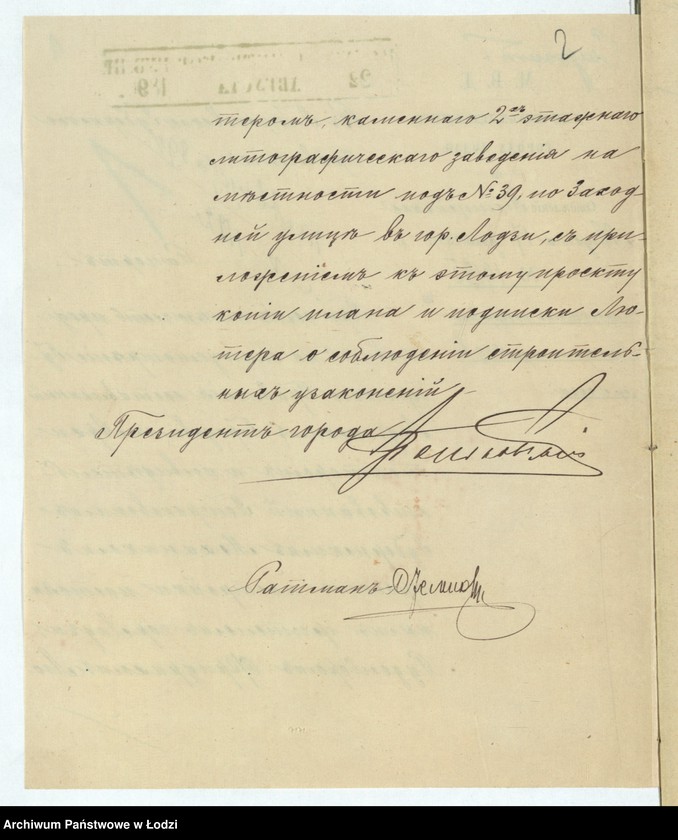 2
теромъ, каменнаго 2хъ этажнаго
литографическаго заведенія на
мѣстности подъ № 39, по Заход-
ней улицѣ въ гор. Лодзи, съ при-
ложеніемъ къ этому проекту
копіи плана и подписки Лю-
тера о соблюденіи строитель-
ныхъ узаконеній.
Президентъ города
Ратманъ
Archiwum Państwowe w Łodzi